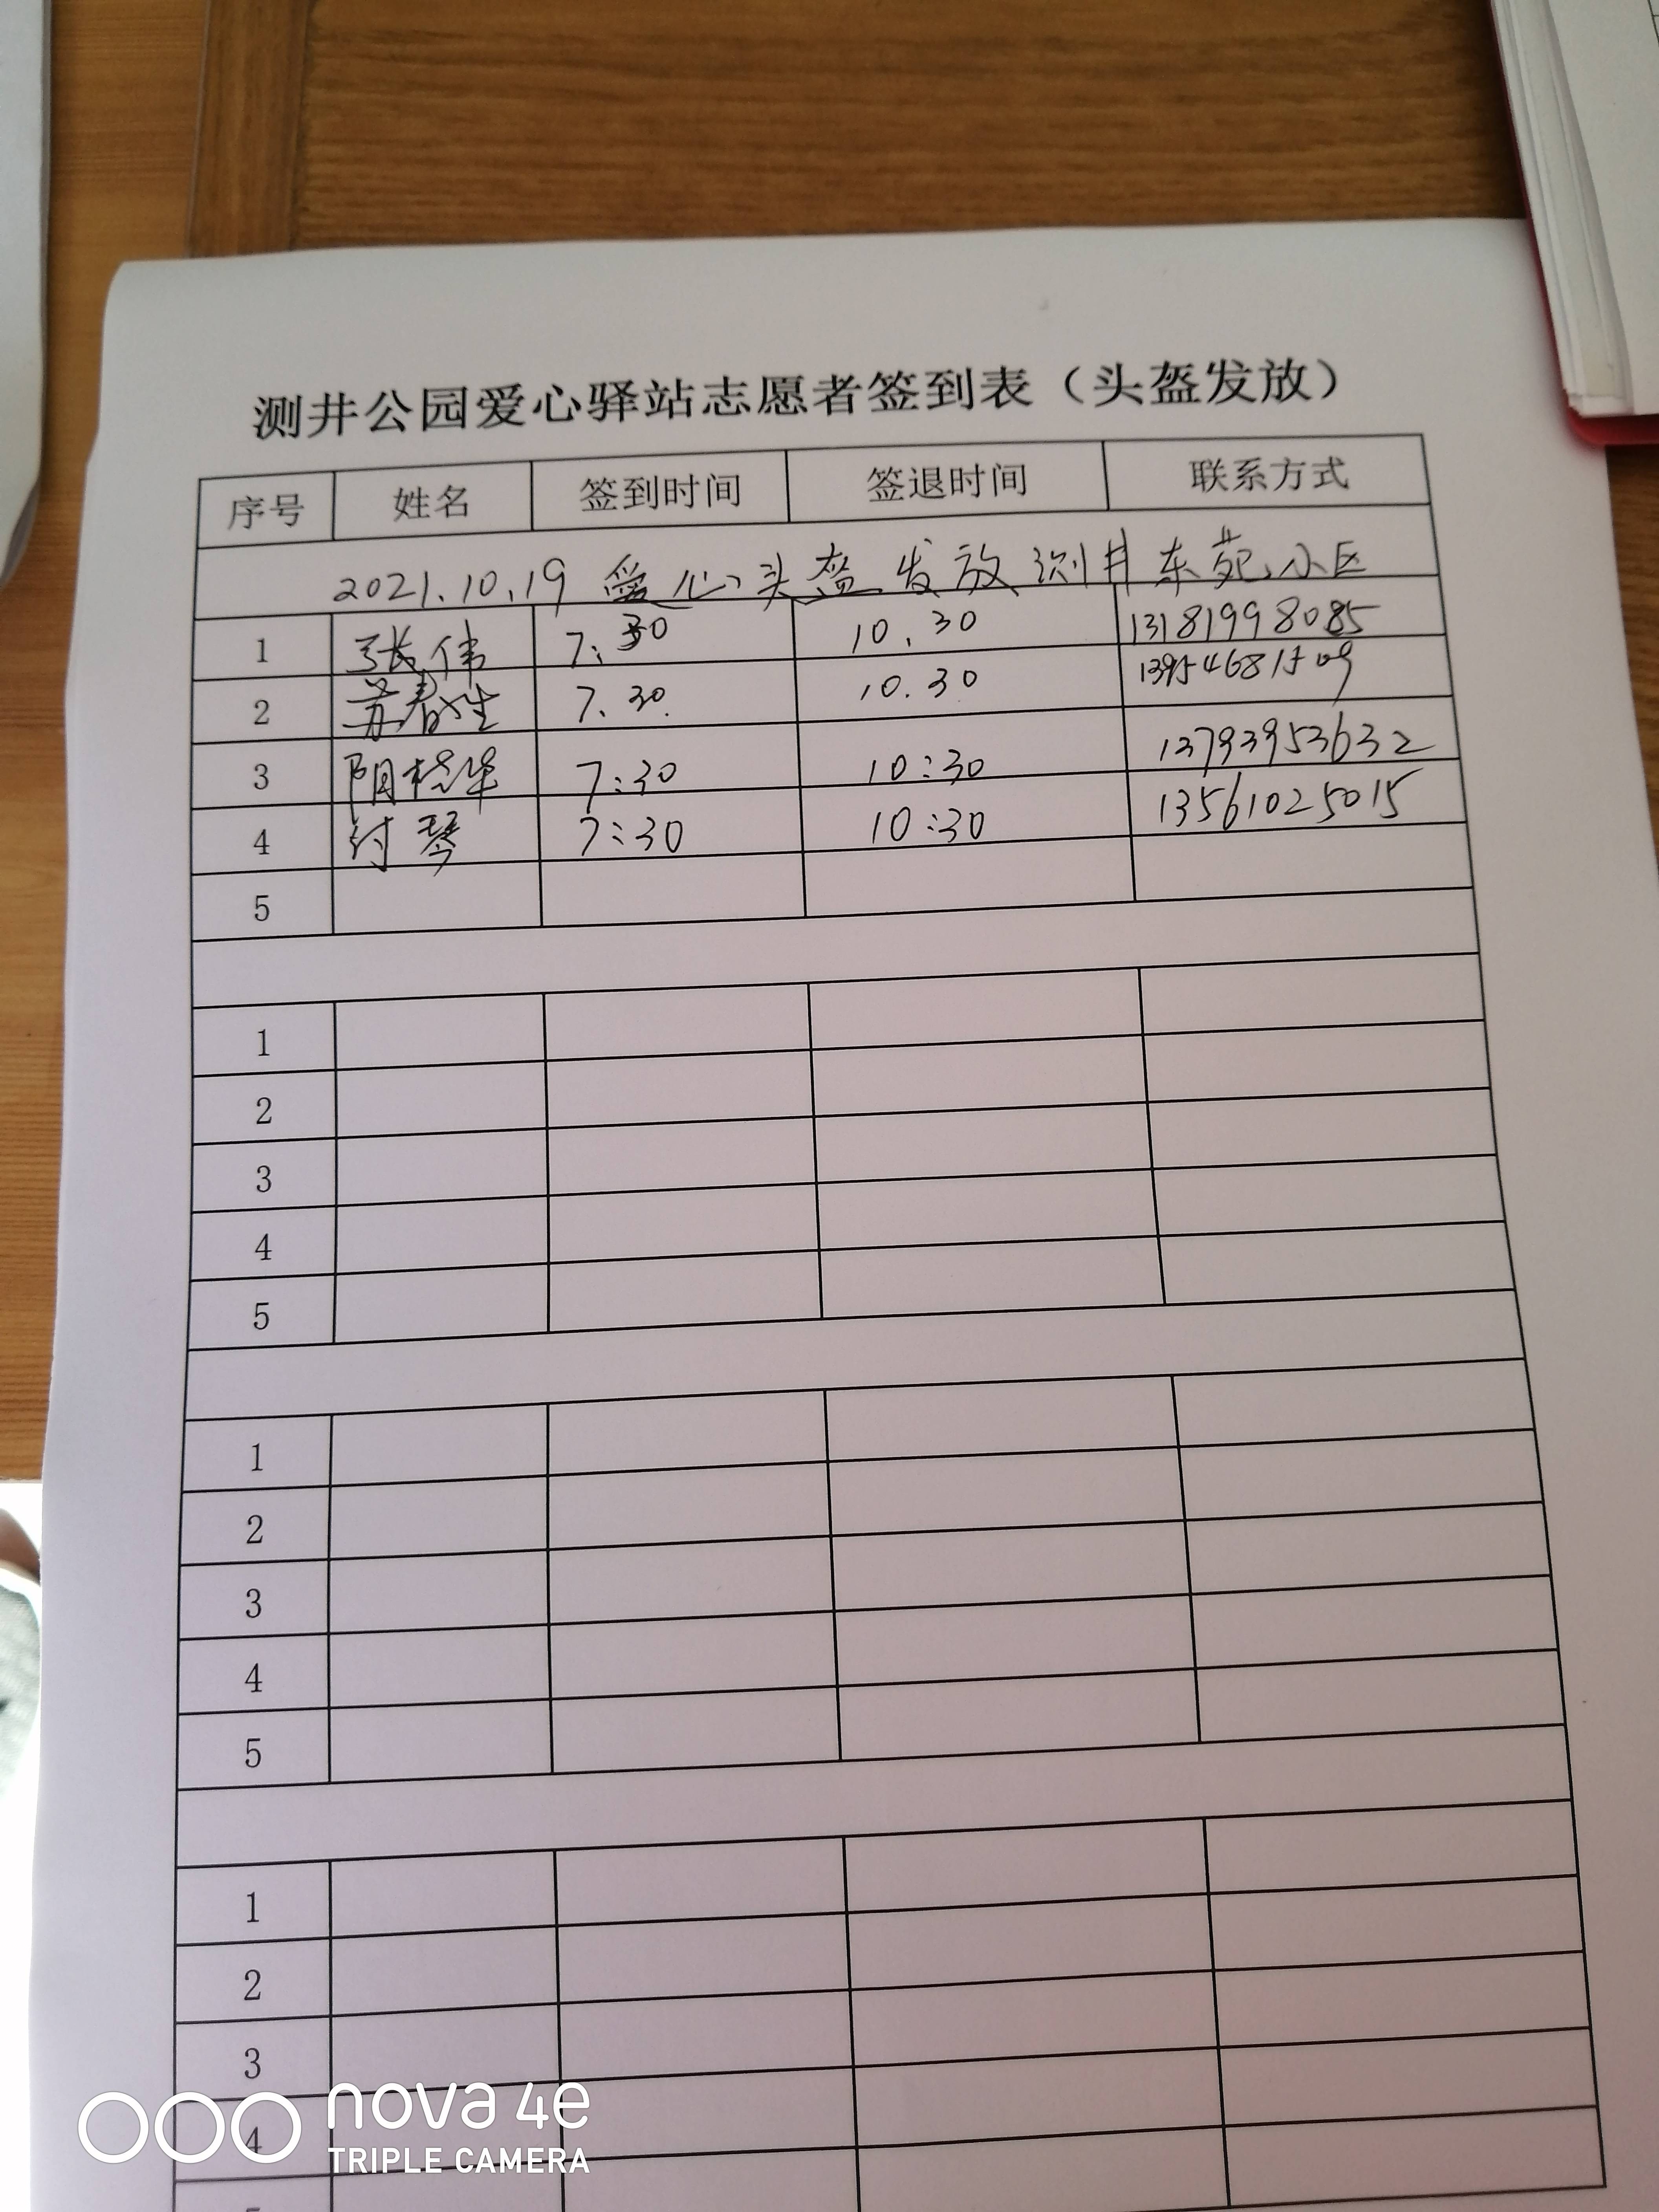 测井公园爱心驿站志愿者签到表（头盔发放）
序号 姓名 签到时间 签退时间 联系方式
2021.10.19 爱心头盔发放测井东苑小区
1 张伟 7:30 10.30 13181998085
2 苏春生 7.30. 10.30 13954681509
3 阴桂华 7:30 10:30 13793953632
4 付琴 7:30 10:30 13561025015
5
1
2
3
4
5
1
2
3
4
5
1
2
3
4
nova 4e
TRIPLE CAMERA